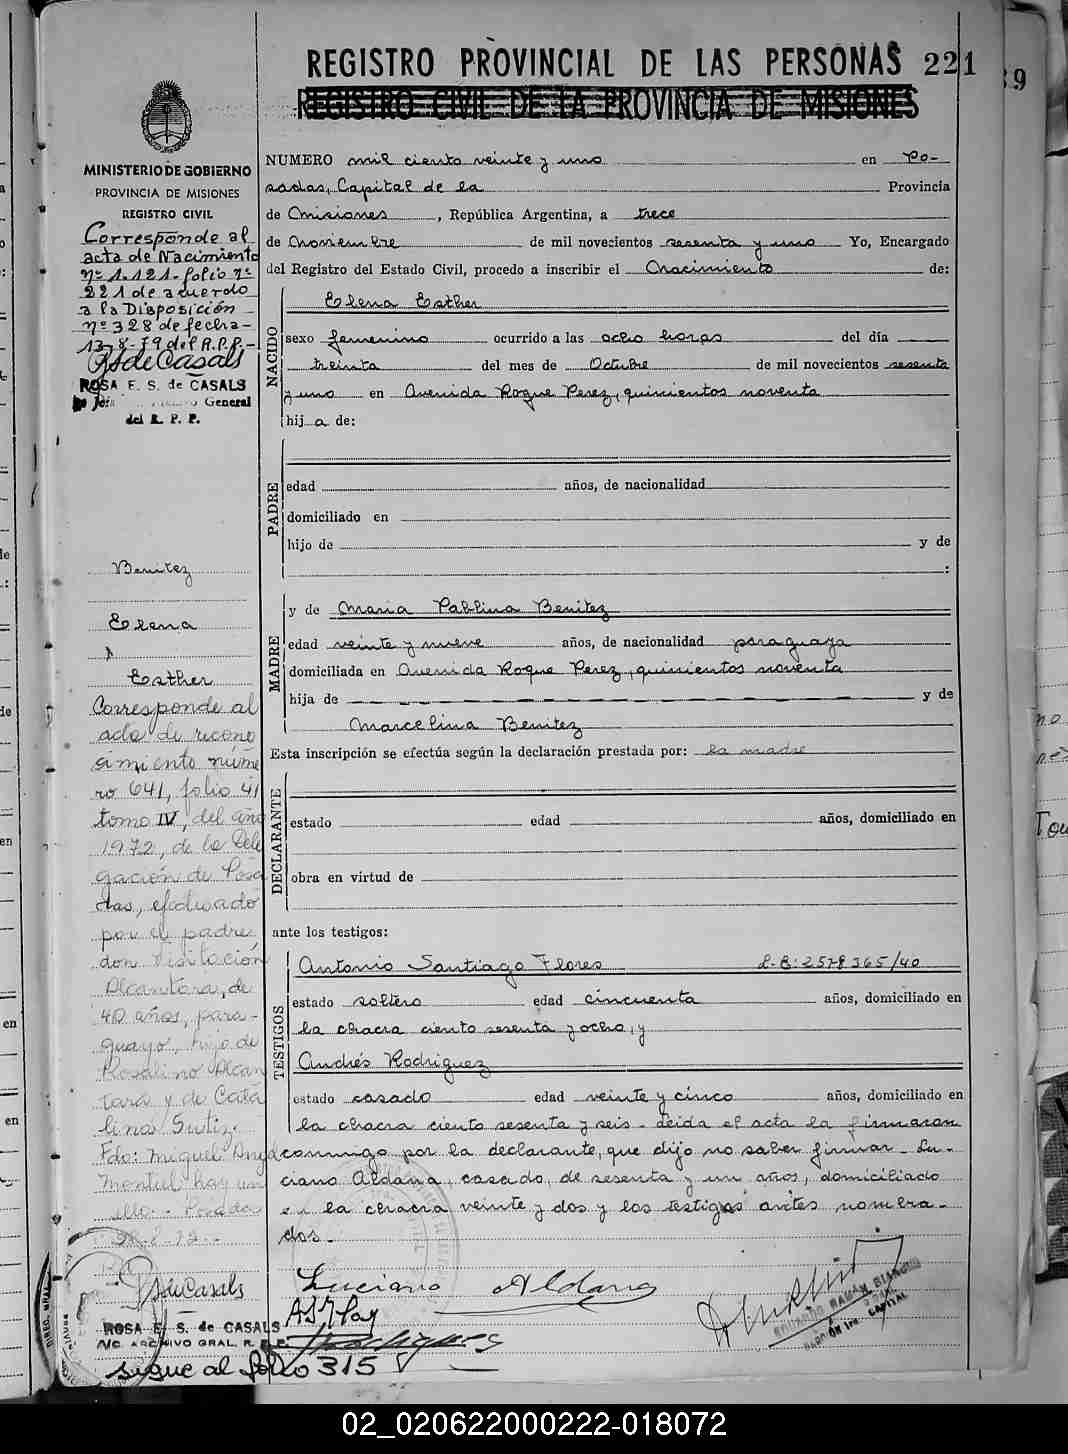 REGISTRO PROVINCIAL DE LAS PERSONAS 221
REGISTRO CIVIL DE LA PROVINCIA DE MISIONES
39
MINISTERIO DE GOBIERNO
PROVINCIA DE MISIONES
REGISTRO CIVIL
Corresponde al
acta de Nacimiento
nº 1.121-folio nº
221 de acuerdo
a la Disposición
nº 328 de fecha-
13-8-79 del R.P.P.-
RSdeCasals
ROSA E. S. de CASALS
General
del R. P. P.
Benitez
Elena
Esther
Corresponde al
acta de recono
cimiento núme
ro 641, folio 41
tomo IV, del año
1972, de la Dele
gación de Posa
das, efectuado
por el padre
don Visitación
Alcantara, de
40 años, para-
guayo, hijo de
Rosalino Alcan
tara y de Cata
lina
Fdo: Miguel Angel
Montiel hay un
sello.- Posadas
RSdeCasals
ROSA E. S. de CASALS
A/C. ARCHIVO GRAL. R. P. P.
sigue al folio 315
NUMERO mil ciento veinte y uno en Po-
sadas, Capital de la Provincia
de Misiones, República Argentina, a trece
de Noviembre de mil novecientos sesenta y uno Yo, Encargado
del Registro del Estado Civil, procedo a inscribir el Nacimiento de:
NACIDO
Elena Esther
sexo femenino ocurrido a las ocho horas del día
treinta del mes de Octubre de mil novecientos sesenta
y uno en Avenida Roque Perez, quinientos noventa
hij a de:
PADRE
edad años, de nacionalidad
domiciliado en
hijo de y de
:
MADRE
y de Maria Pablina Benitez
edad veinte y nueve años, de nacionalidad paraguaya
domiciliada en Avenida Roque Perez, quinientos noventa
hija de y de
Marcelina Benitez
Esta inscripción se efectúa según la declaración prestada por: la madre
DECLARANTE
estado edad años, domiciliado en
obra en virtud de
ante los testigos:
TESTIGOS
Antonio Santiago Flores L.E: 2578365/40
estado soltero edad cincuenta años, domiciliado en
la chacra ciento sesenta y ocho, y
Andrés Rodriguez
estado casado edad veinte y cinco años, domiciliado en
la chacra ciento sesenta y seis - Leida el acta la firmaron
conmigo por la declarante, que dijo no saber firmar - Lu-
ciano Aldana, casado, de sesenta y un años, domiciliado
en la chacra veinte y dos y los testigos antes nombra-
dos.-
Luciano Aldana
02_020622000222-018072